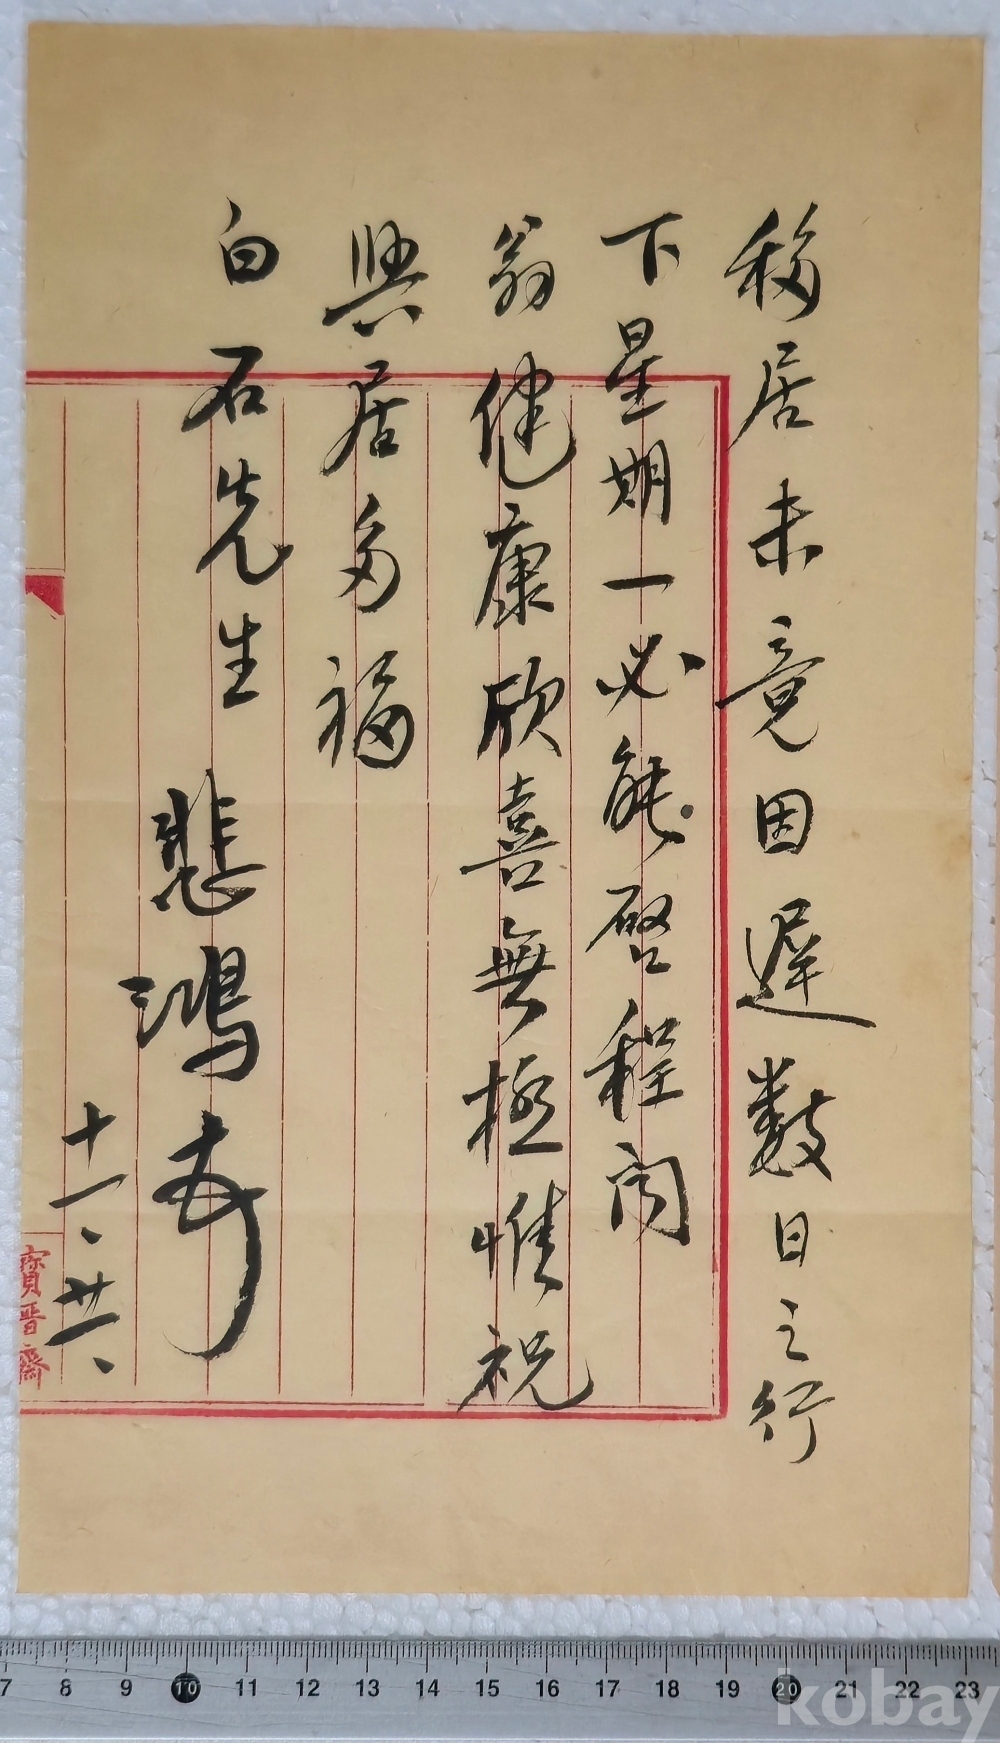 移居未竟因遲數日之行
下星期一必能啓程聞
翁健康欣喜無極惟祝
興居多福
白石先生
悲鴻
十一、廿一、
寶晋齋
7 8 9 10 11 12 13 14 15 16 17 18 19 20 21 22 23
kobay